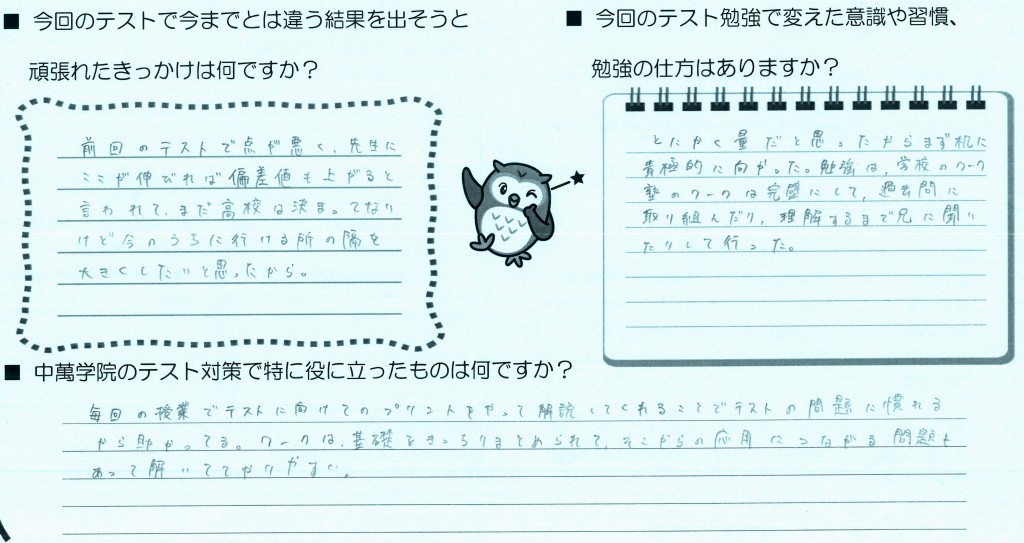 ■ 今回のテストで今までとは違う結果を出そうと
頑張れたきっかけは何ですか？
前回のテストで点が悪く、先生に
ここが伸びれば偏差値も上がると
言われて、まだ高校は決まってない
けど今のうちに行ける所の幅を
大きくしたいと思ったから。
■ 今回のテスト勉強で変えた意識や習慣、
勉強の仕方はありますか？
とにかく量だと思ったからまず机に
積極的に向かった。勉強は、学校のワーク
塾のワークは完璧にして、過去問に
取り組んだり、理解するまで兄に聞い
たりして行った。
■ 中萬学院のテスト対策で特に役に立ったものは何ですか？
毎回の授業でテストに向けてのプリントをやって解説してくれることでテストの問題に慣れる
から助かってる。ワークは、基礎をきっちりまとめられて、そこからの応用につながる問題も
あって解いててやりやすい。